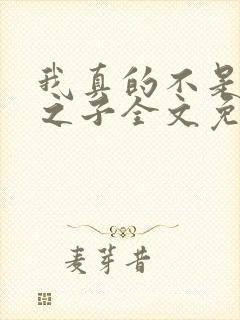 我真的不是
之子全文免
麦芽昔